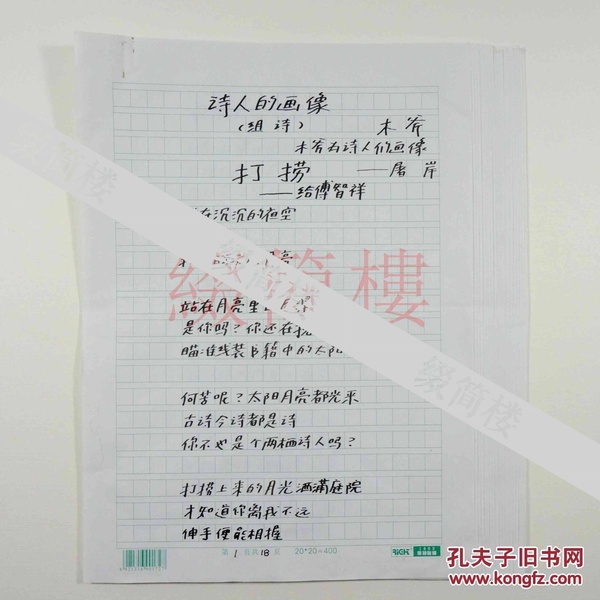 诗人的画像
(组诗) 木斧
木斧为诗人们画像
打捞 ——屠岸
——给傅智祥
在沉沉的夜空
亮
站在月亮里
是你吗?你还在
瞄准线装书籍中的太阳
何苦呢?太阳月亮都光采
古诗今诗都是诗
你不也是个两栖诗人吗?
打捞上来的月光洒满庭院
才知道你离我不远
伸手便能相握
第 1 页共 18 页 20*20=400
缀简楼
缀简楼
缀简楼
孔夫子旧书网
www.kongfz.com